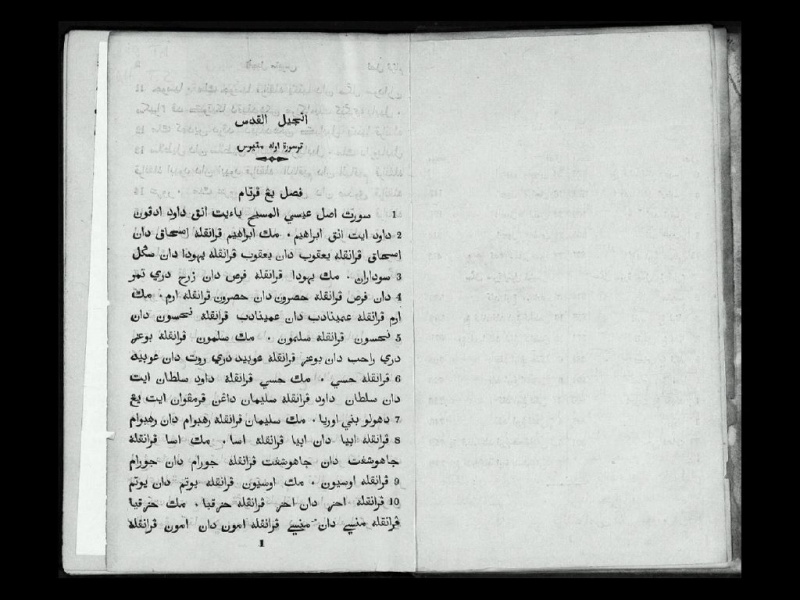 انجيل القدس
ترسورة اوله متيوس
فصل يڠ ڤرتام
1 سورت اصل عيسي المسيح ياءيت انق داود ادڤون
2 داود ايت انق ابراهيم. مك ابراهيم ڤرانقله اسحاق دان
اسحاق ڤرانقله يعقوب دان يعقوب ڤرانقله يهودا دان سڬل
3 سوداران. مك يهودا ڤرانقله فرص دان زرح دري تمر
4 دان فرص ڤرانقله حصرون دان حصرون ڤرانقله ارم. مك
ارم ڤرانقله عميندب دان عميندب ڤرانقله نحسون دان
5 نحسون ڤرانقله سلمون. مك سلمون ڤرانقله بوعز
دري راحب دان بوعز ڤرانقله عوبيد دري روت دان عوبيد
6 ڤرانقله حسي. مك حسي ڤرانقله داود سلطان ايت
دان سلطان داود ڤرانقله سليمان داڠن ڤرمڤوان ايت يڠ
7 دهولو بني اوريا. مك سليمان ڤرانقله رهبوام دان رهبوام
8 ڤرانقله ابيا دان ابيا ڤرانقله اسا. مك اسا ڤرانقله
جاهوشفت دان جاهوشفت ڤرانقله جورام دان جورام
9 ڤرانقله اوسيون. مك اوسيون ڤرانقله يوتم دان يوتم
10 ڤرانقله احز دان احز ڤرانقله حزقيا. مك حزقيا
ڤرانقله منسي دان منسي ڤرانقله امون دان امون ڤرانقله
1